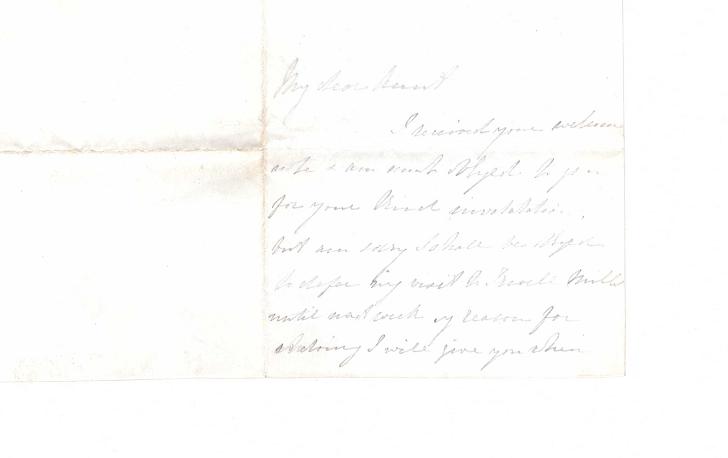 My dear Aunt
I received your welcome
note & am much obliged to you
for your kind invitatation,
but am sorry I shall be obliged
to defer my visit to Mills
until next week my reason for
I will give you when